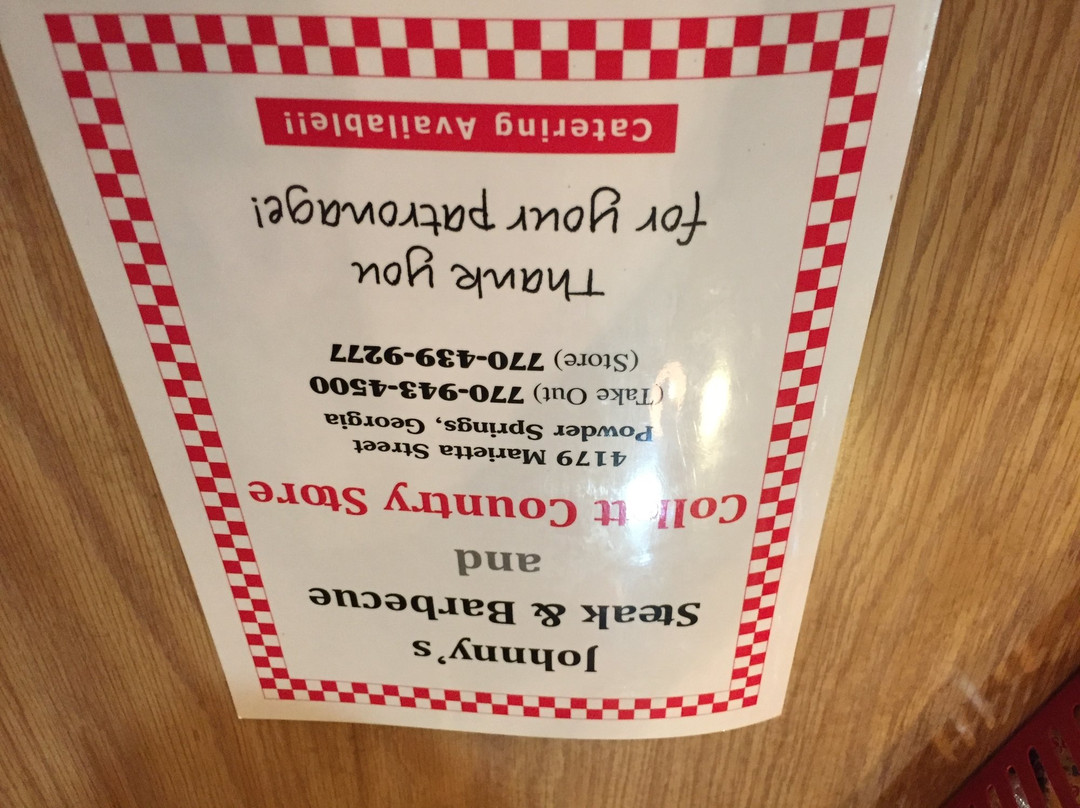 Johnny's
Steak & Barbecue
and
Country Store
4179 Marietta Street
Powder Springs, Georgia
(Take Out) 770-943-4500
(Store) 770-439-9277
Thank you
for your patronage!
Catering Available!!